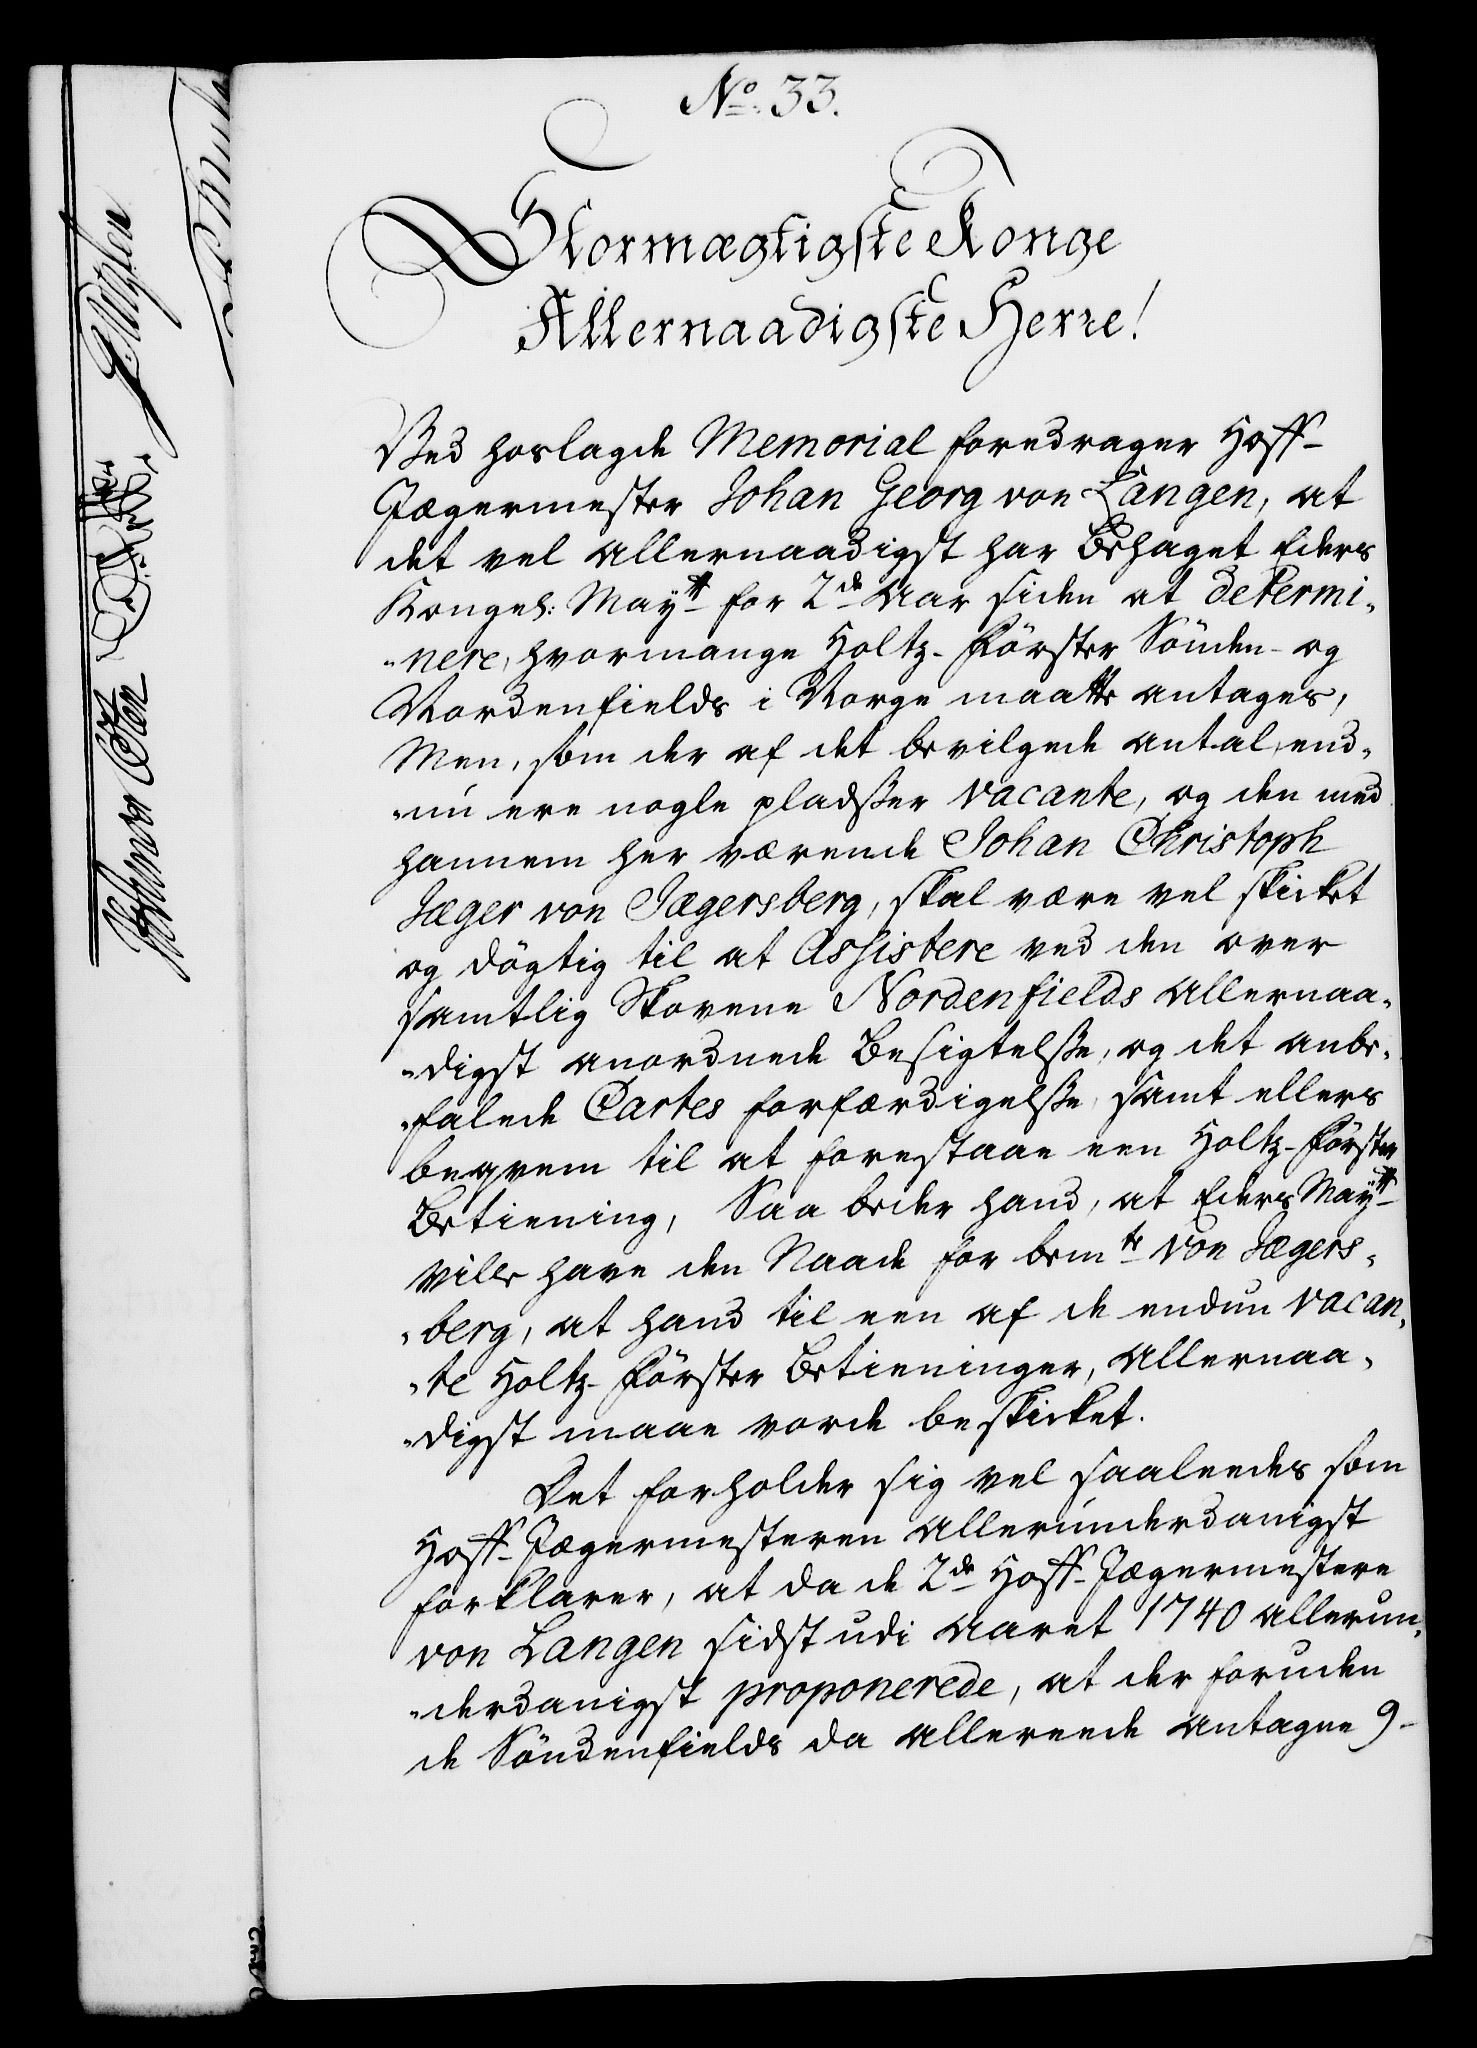 No. 33.
Stormægtigste Konge
Allernaadigste Herre!
Ved hoslagde Memorial foredrager Hoff-
Jægermester Johan Georg von Langen, at
det vel allernaadigst har behaget Eders
Kongel: Maytt for 2de Aar siden at determi-
-nere, hvormange Holtz-Förster Sönden- og
Nordenfields i Norge maatte antages,
Men, som der af det bevilgede antal, end-
-nu ere nogle pladsser vacante, og den med
hannem her værende Johan Christoph
Jæger von Jægersberg, skal være vel skicket
og dögtig til at Assistere ved den over
samtlig Skovene Nordenfields allernaa-
-digst anordnede Besigtelsse, og det anbe-
-falede Cartes forfærdigelsse, samt ellers
beqvem til at forestaae een Holtz-Förster
Betiening, Saa beder hand, at Eders Maytt
ville have den Naade for bemte von Jægers-
-berg, at hand til een af de endnu vacan-
-te Holtz-Förster Betieninger, allernaa-
-digst maae vorde beskicket.
Det forholder sig vel saaleedes som
Hoff-Jægermesteren allerunderdanigst
forklarer, at da de 2de Hoff-Jægermestere
von Langen sidst udi Aaret 1740 allerun-
-derdanigst proponerede, at der foruden
de Söndenfields da allereede antagne 9-